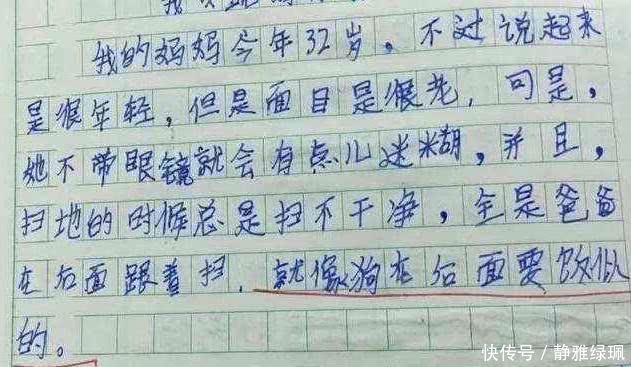 我的妈妈今年32岁。不过说起来
是很年轻,但是面目是很老,可是,
她不带眼镜就会有点儿迷糊,并且,
扫地的时候总是扫不干净,全是爸爸
在后面跟着扫.就像狗在后面要饭似
的。
快传号/静雅绿珮